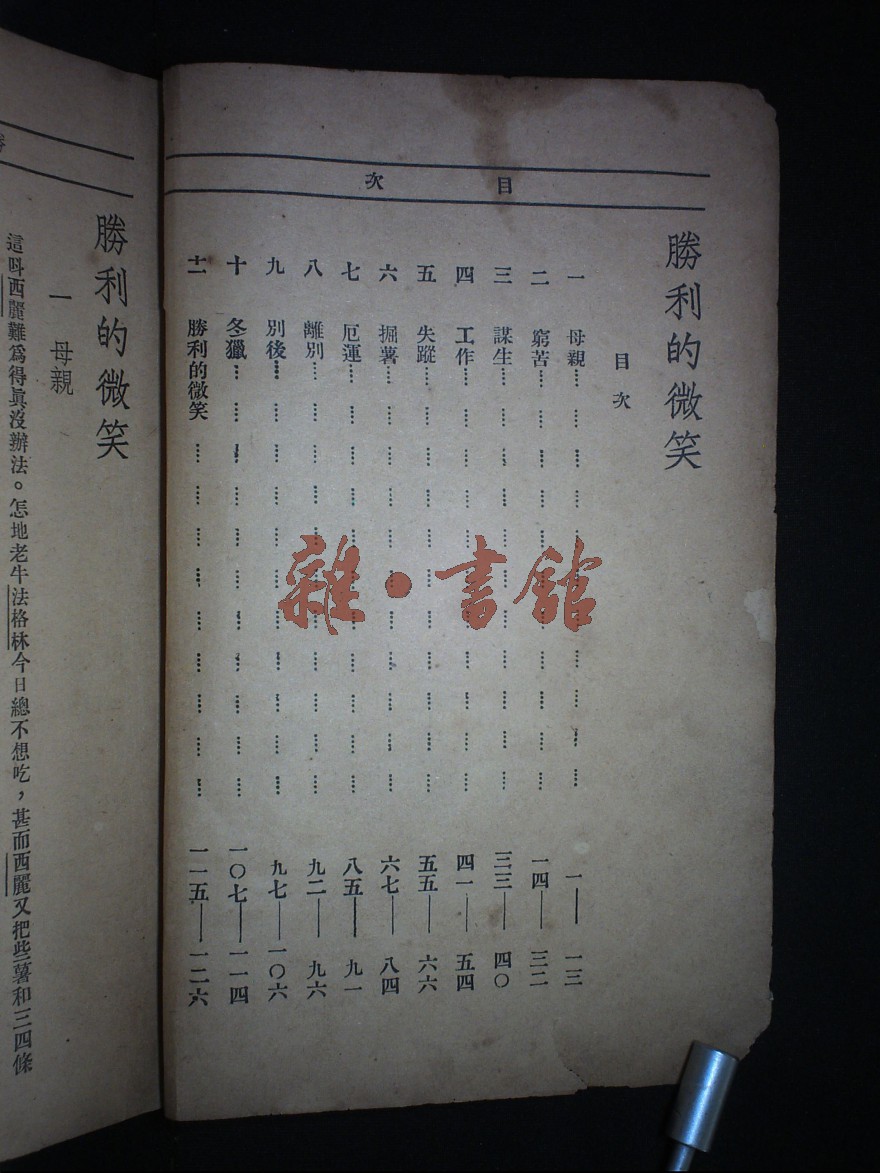 目次
勝利的微笑
目次
一 母親 一——一三
二 窮苦 一四——三二
三 謀生 三三——四〇
四 工作 四一——五四
五 失蹤 五五——六六
六 掘薯 六七——八四
七 厄運 八五——九一
八 離別 九二——九六
九 別後 九七——一〇六
十 冬獵 一〇七——一一四
十一 勝利的微笑 一一五——一二六
勝利的微笑
一 母親
這呌西麗難為得眞沒辦法。怎地老牛法格林今日總不想吃，甚而西麗又把些薯和三四條
雜·書館